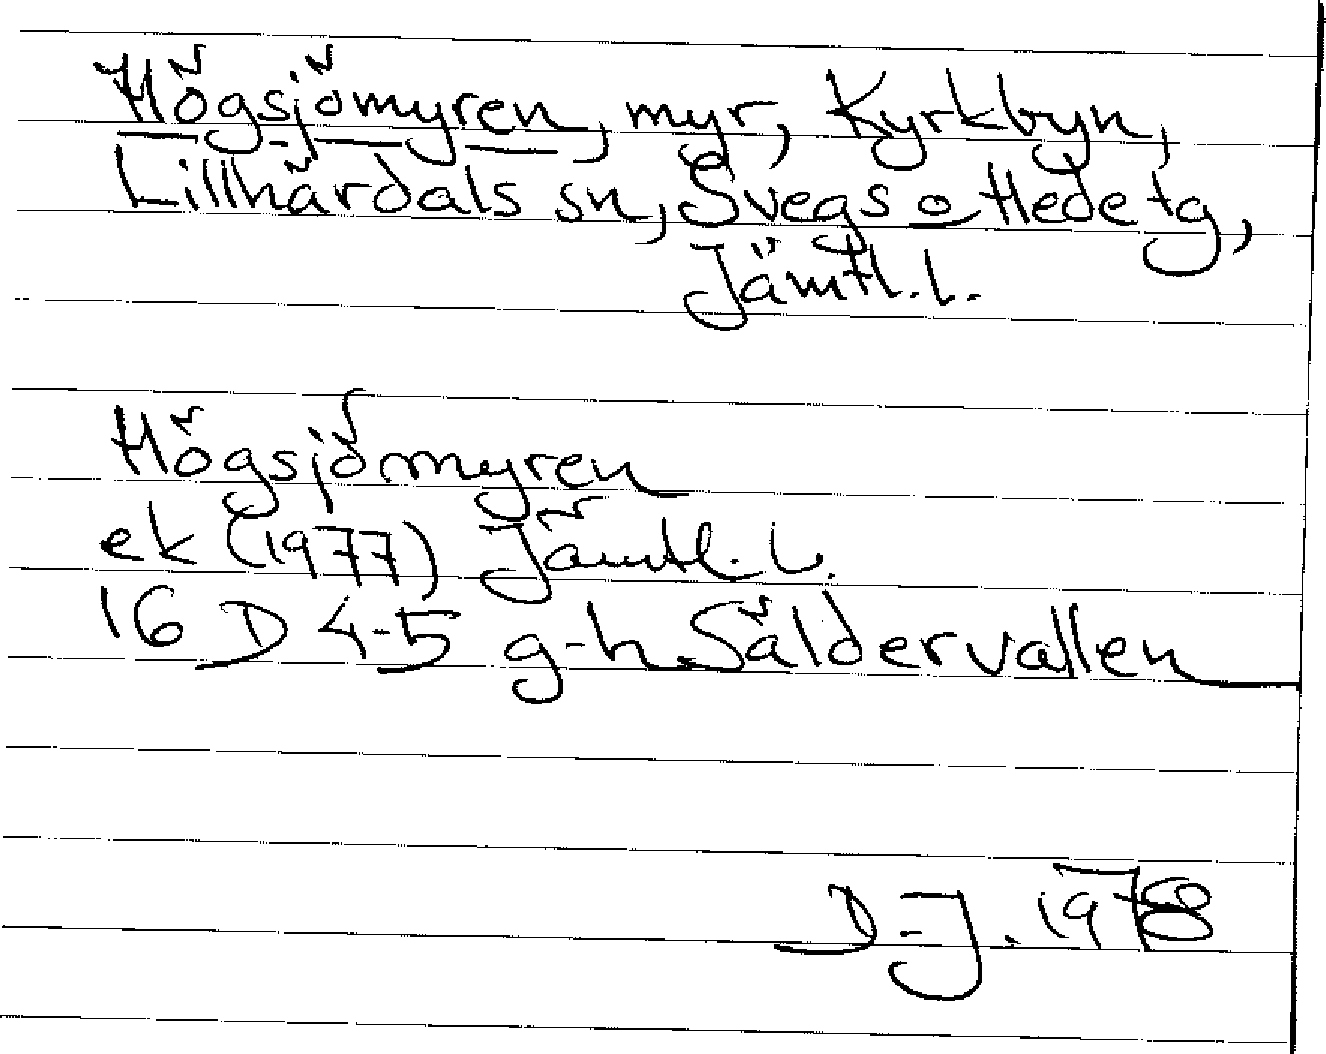 Högsjömyren, myr, Kyrkbyn,
Lillhärdals sn, Svegs o Hede tg,
Jämtl. l.
Högsjömyren
ek (1977) Jämtl. L.
16 D 4-5 g-h Säldervallen
D-J. 1978